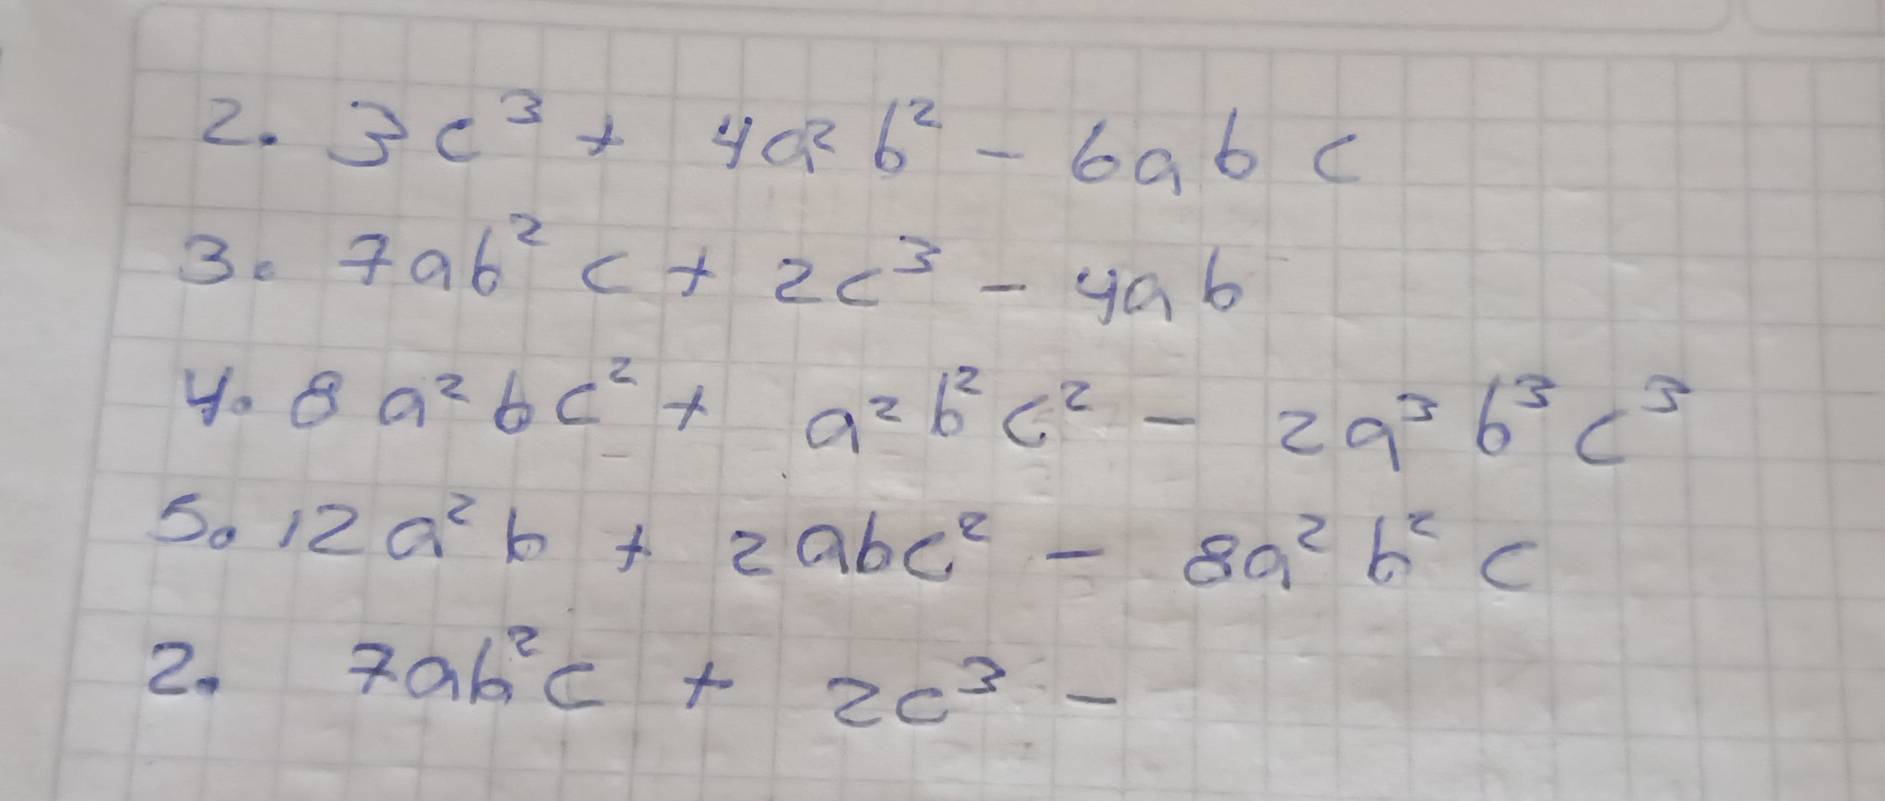 2. 3c³ + 4a²b² - 6abc
3. 7ab²c + 2c³ - 4ab
4. 8a²bc² + a²b²c² - 2a³b³c³
5. 12a²b + 2abc² - 8a²b²c
2. 7ab²c + 2c³ -